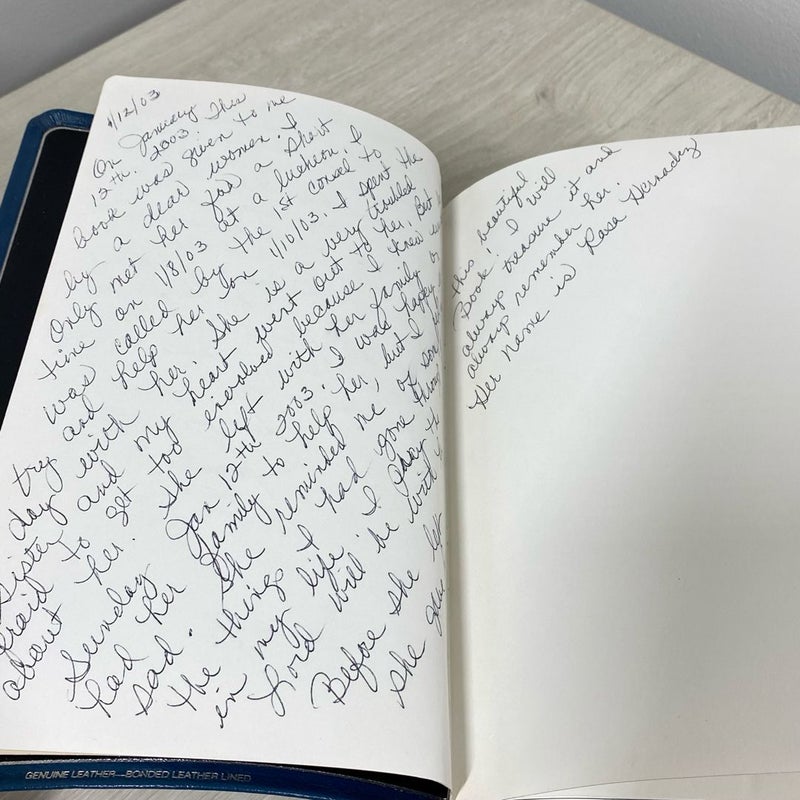 1/12/03
On January
12th. 2003. This
Book was given to me
by a dear woman. I
Only met her for a short
time on 1/8/03 at a lucheon. I
was called by the 1st Consel to
try and help her on 1/10/03. I spent the
day with her. She is a very troubled
Sister and my heart went out to her. But
afraid to get too involved because I knew
about her. She left with her family on
Sunday Jan 12th 2003. I was happy
had her family to help her, but I
sad. She reminded me of
the things I had gone
in my life. I pray
Lord will be with
Before she left
she
this beautiful
Book. I will
always treasure it and
always remember her.
Her name is Rosa Hernadez
GENUINE LEATHER—BONDED LEATHER LINED